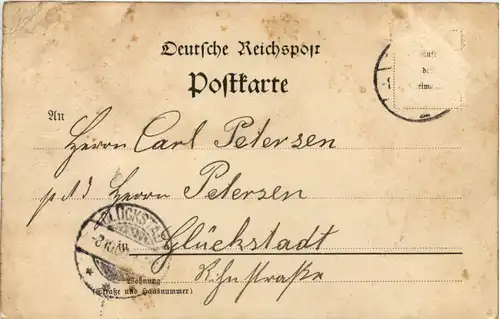 Deutsche Reichspost
Postkarte
An
Herrn Carl Petersen
Herrn Petersen
GLÜCKSTADT
Glückstadt
Wohnung
(Straße und Hausnummer)